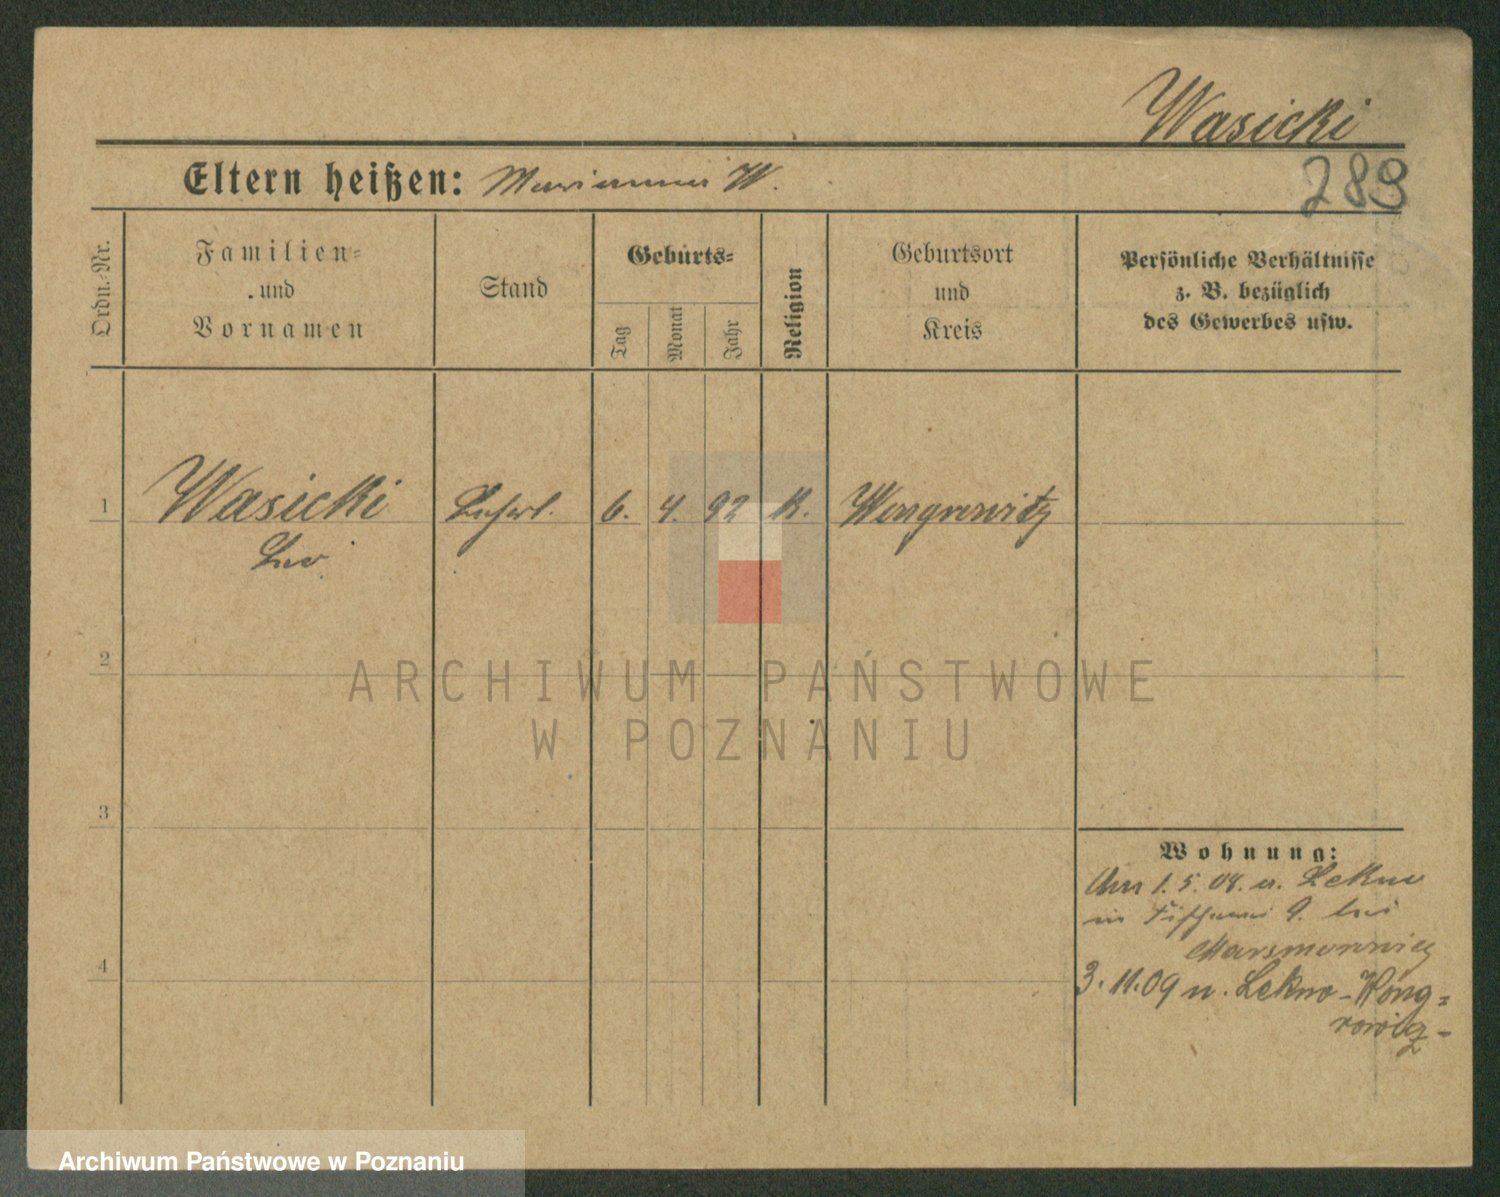 Wasicki
289
Eltern heißen: Marianna W.
Ordn.-Nr.
Familien-
und
Vornamen
Stand
Geburts-
Tag
Monat
Jahr
Religion
Geburtsort
und
Kreis
Persönliche Verhältnisse
z. B. bezüglich
des Gewerbes usw.
1
Wasicki
Leo
Lehrl.
6.
4.
92
K.
Wongrowitz
2
ARCHIWUM PAŃSTWOWE
W POZNANIU
3
Wohnung:
1. 5. 08. Lekno
in Fischerei 9. bei
4
3. 11. 09 n. Lekno - Wong=
Archiwum Państwowe w Poznaniu